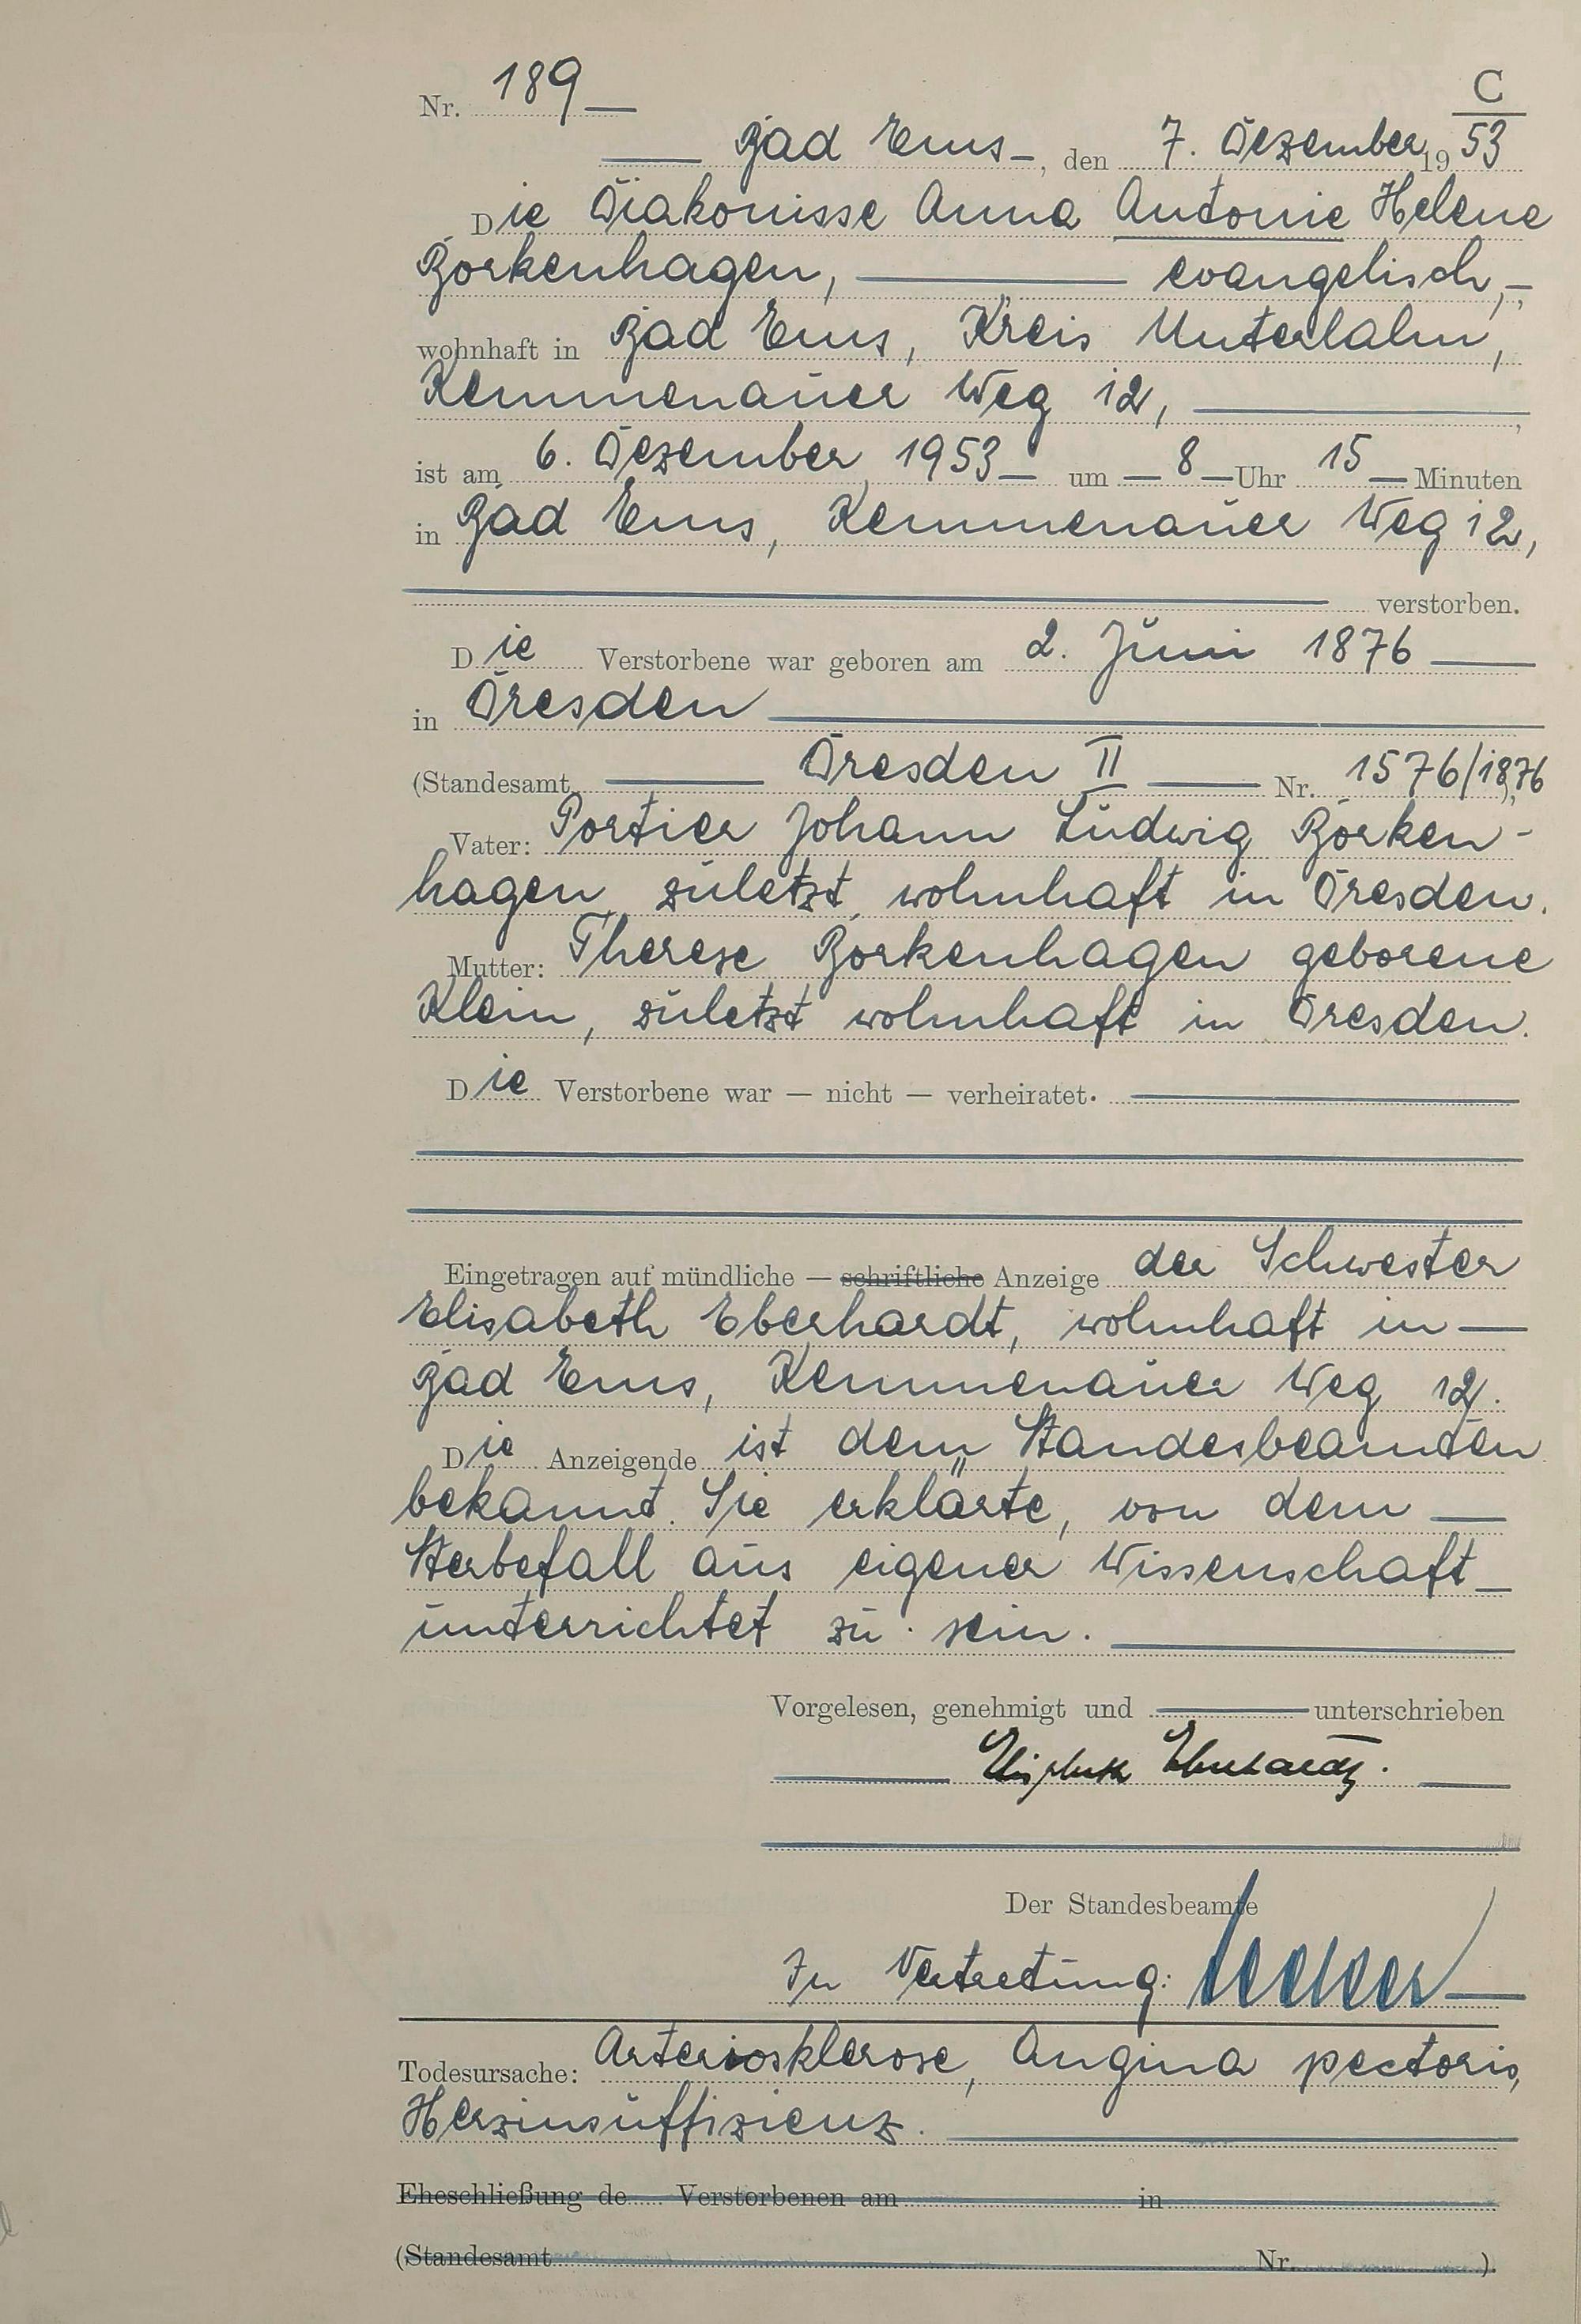 Nr. 189
C
Bad Ems, den 7. Dezember 1953
Die Diakonisse Anna Antonie Helene
Borkenhagen, evangelisch,
wohnhaft in Bad Ems, Kreis Unterlahn,
Kemmenauer Weg 12,
ist am 6. Dezember 1953 um 8 Uhr 15 Minuten
in Bad Ems, Kemmenauer Weg 12,
verstorben.
Die Verstorbene war geboren am 2. Juni 1876
in Dresden
(Standesamt Dresden II Nr. 1576/1876)
Vater: Portier Johann Ludwig Borken-
hagen zuletzt wohnhaft in Dresden.
Mutter: Therese Borkenhagen geborene
Klein, zuletzt wohnhaft in Dresden.
Die Verstorbene war — nicht — verheiratet.
Eingetragen auf mündliche — schriftliche Anzeige der Schwester
Elisabeth Eberhardt, wohnhaft in
Bad Ems, Kemmenauer Weg 12.
Die Anzeigende ist dem Standesbeamten
bekannt. Sie erklärte, von dem
Sterbefall aus eigener Wissenschaft
unterrichtet zu sein.
Vorgelesen, genehmigt und unterschrieben
Elisabeth Eberhardt.
Der Standesbeamte
In Vertretung:
Todesursache: Arteriosklerose, Angina pectoris,
Herzinsuffizienz.
Eheschließung de Verstorbenen am in
(Standesamt Nr. )